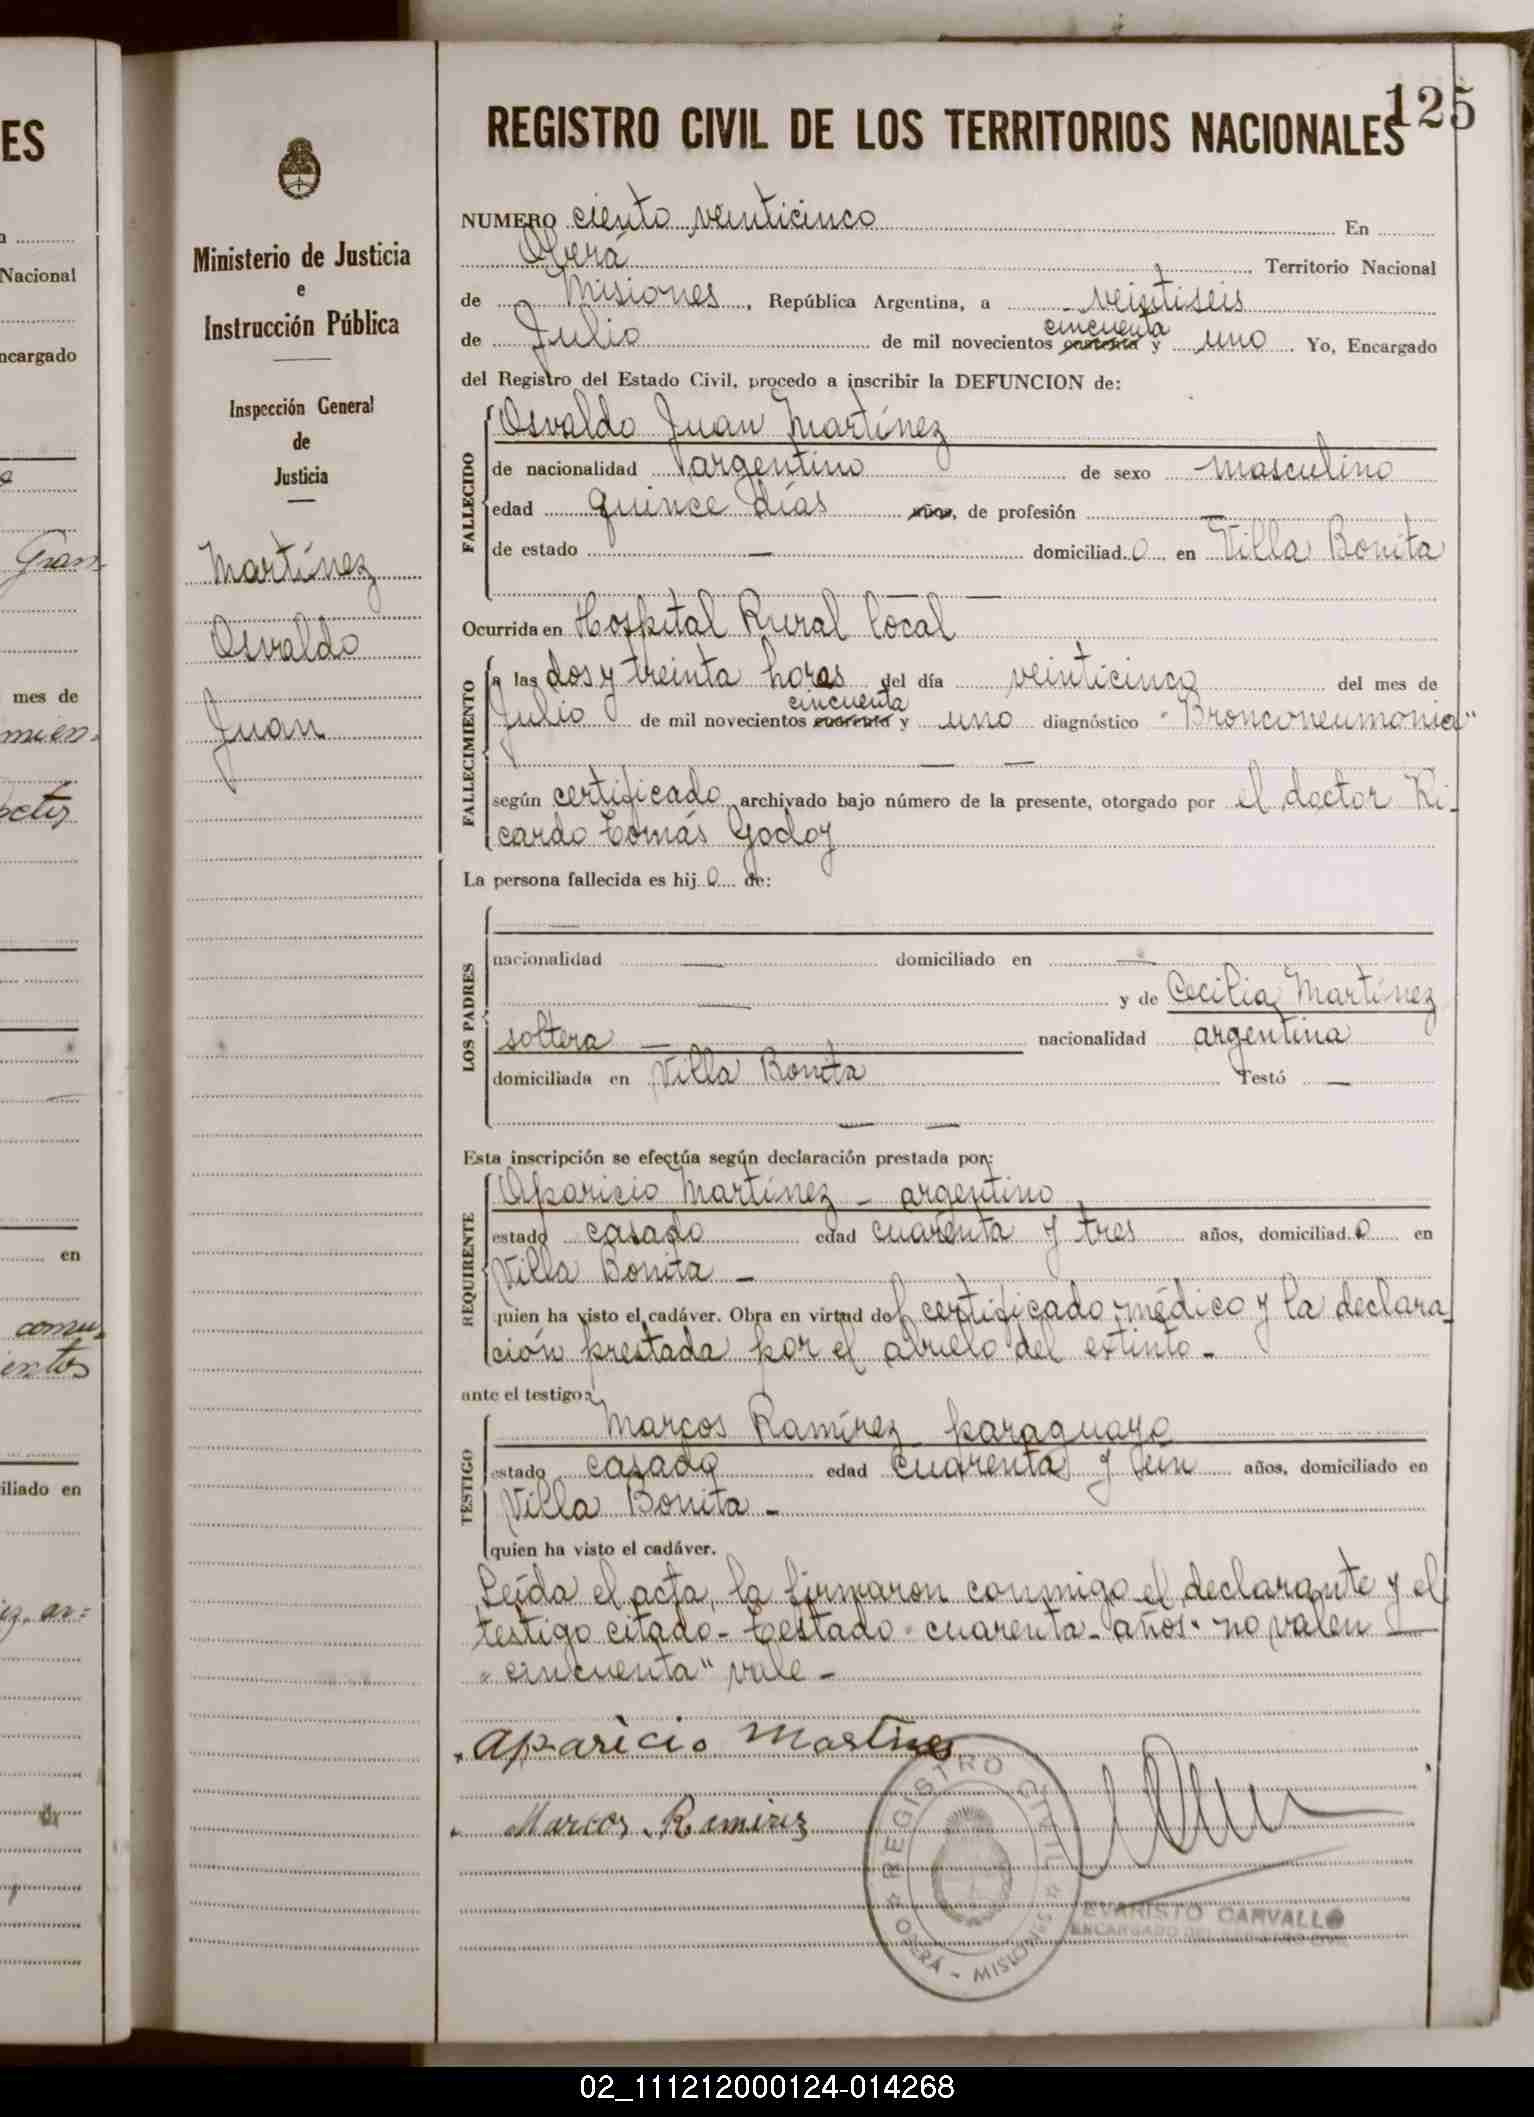 125
REGISTRO CIVIL DE LOS TERRITORIOS NACIONALES
Ministerio de Justicia
e
Instrucción Pública
Inspección General
de
Justicia
Martínez
Osvaldo
Juan
NUMERO ciento veinticinco En
Oberá Territorio Nacional
de Misiones, República Argentina, a veintiseis
cincuenta
de Julio de mil novecientos cuarenta y uno Yo, Encargado
del Registro del Estado Civil, procedo a inscribir la DEFUNCION de:
FALLECIDO
Osvaldo Juan Martínez
de nacionalidad argentino de sexo masculino
edad quince días años, de profesión —
de estado — domiciliad.o en Villa Bonita
—
Ocurrida en Hospital Rural local
FALLECIMIENTO
a las dos y treinta horas del día veinticinco del mes de
cincuenta
Julio de mil novecientos cuarenta y uno diagnóstico "Bronconeumonia"
— —
según certificado archivado bajo número de la presente, otorgado por el doctor Ri-
cardo Tomás Godoy
La persona fallecida es hij.o de:
LOS PADRES
—
nacionalidad — domiciliado en —
— y de Cecilia Martínez
soltera — nacionalidad argentina
domiciliada en Villa Bonita Testó —
— —
Esta inscripción se efectúa según declaración prestada por:
REQUIRENTE
Aparicio Martínez - argentino
estado casado edad cuarenta y tres años, domiciliad.o en
Villa Bonita -
quien ha visto el cadáver. Obra en virtud del certificado médico y la declara-
ción prestada por el abuelo del extinto -
ante el testigo:
TESTIGO
Marcos Ramírez paraguayo
estado casado edad cuarenta y seis años, domiciliado en
Villa Bonita -
quien ha visto el cadáver.
Leída el acta, la firmaron conmigo el declarante y el
testigo citado - Testado - cuarenta - años - no valen —
"cincuenta" vale -
Aparicio Martines
Marcos Ramirez
REGISTRO CIVIL
OBERÁ - MISIONES
EVARISTO CARVALLO
ENCARGADO DEL REGISTRO CIVIL
ES
Nacional
ncargado
Gran-
mes de
mien-
en
comu-
entos
iliado en
02_111212000124-014268